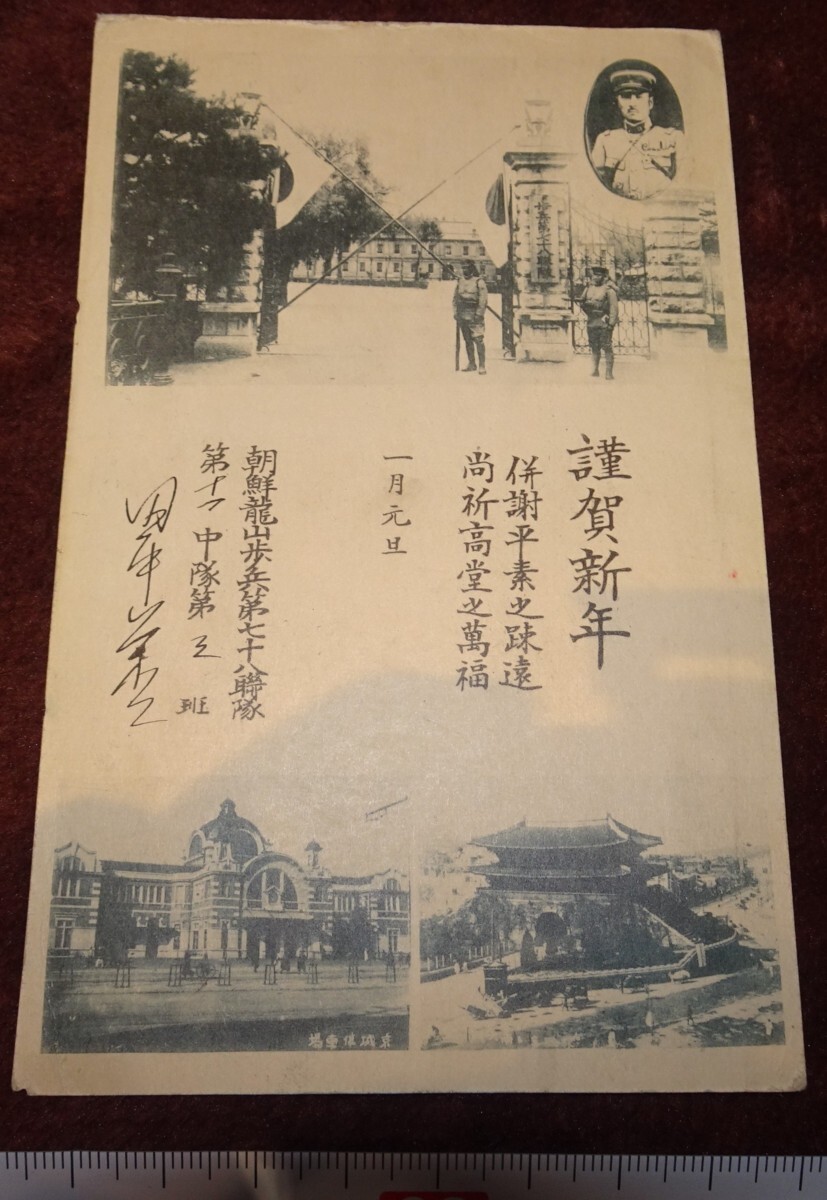 歩兵第七十八聯隊
謹賀新年
併謝平素之疎遠
尚祈高堂之萬福
一月元旦
朝鮮龍山歩兵第七十八聯隊
第十一中隊第 班
京城停車場